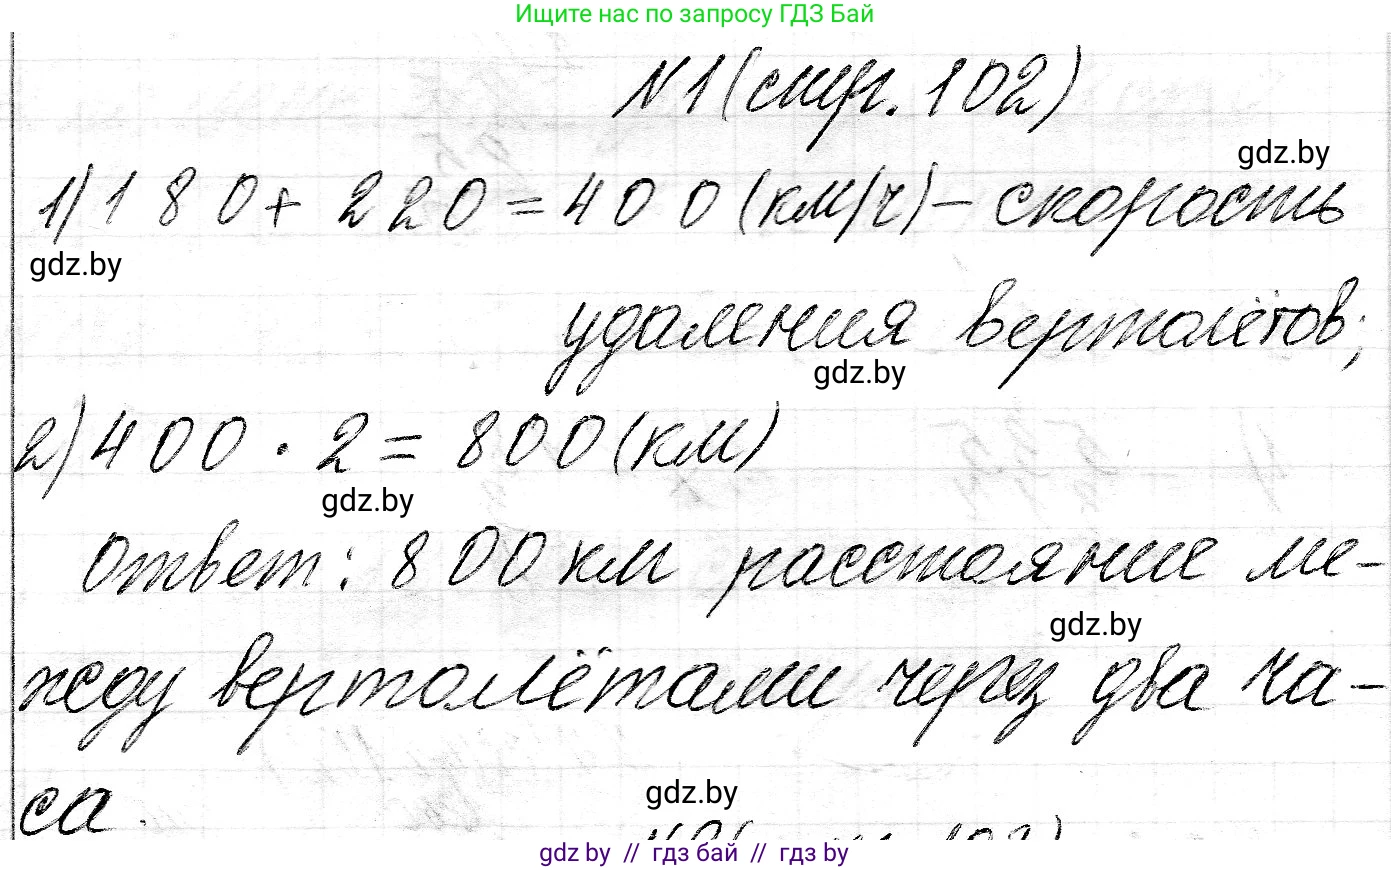 Ищите нас по запросу ГДЗ Бай
№1 (стр. 102)
gdz.by
1) 180 + 220 = 400 (км/ч) – скорость
gdz.by
удаления вертолётов;
gdz.by
2) 400 · 2 = 800 (км)
gdz.by
Ответ: 800 км расстояние ме-
gdz.by
жду вертолётами через два ча-
gdz.by
са.
gdz.by // гдз бай // гдз by